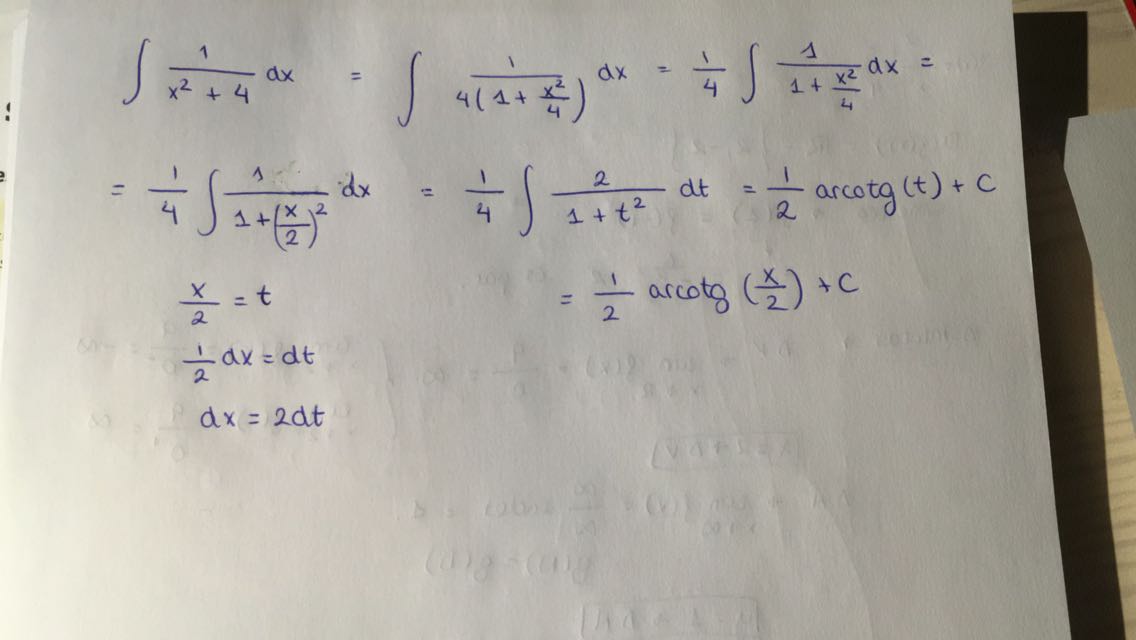 ∫ 1/(x² + 4) dx = ∫ 1/(4(1 + x²/4)) dx = 1/4 ∫ 1/(1 + x²/4) dx =
= 1/4 ∫ 1/(1 + (x/2)²) dx = 1/4 ∫ 2/(1 + t²) dt = 1/2 arcotg(t) + C
x/2 = t = 1/2 arcotg (x/2) + C
1/2 dx = dt
dx = 2dt